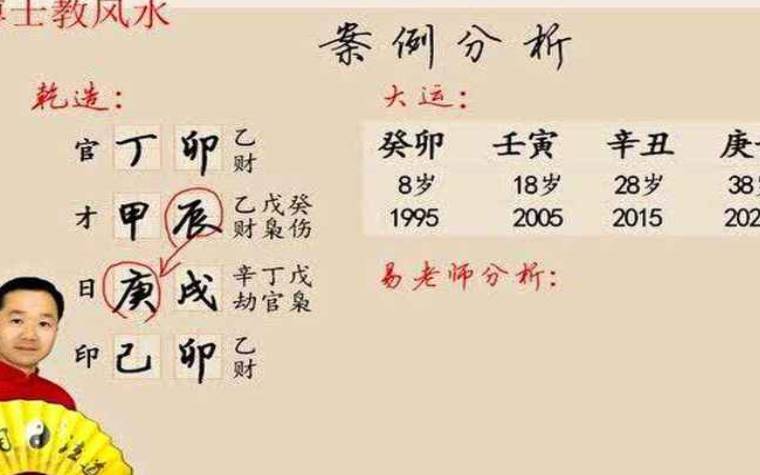 博士教风水
案例分析
乾造：
官 丁 卯 乙
财
才 甲 辰 乙戊癸
财枭伤
日 庚 戌 辛丁戊
劫官枭
印 己 卯 乙
财
大运：
癸卯 壬寅 辛丑 庚
8岁 18岁 28岁 38岁
1995 2005 2015 202
易老师分析：